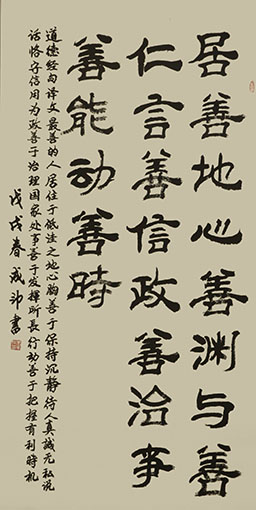 居善地心善渊与善
仁言善信政善治事
善能动善時
道德经句译文最善的人居住于低洼之地心胸善于保持沉静待人真诚无私说
话恪守信用为政善于治理国家处事善于发挥所长行动善于把握有利時机
戊戌春成
書